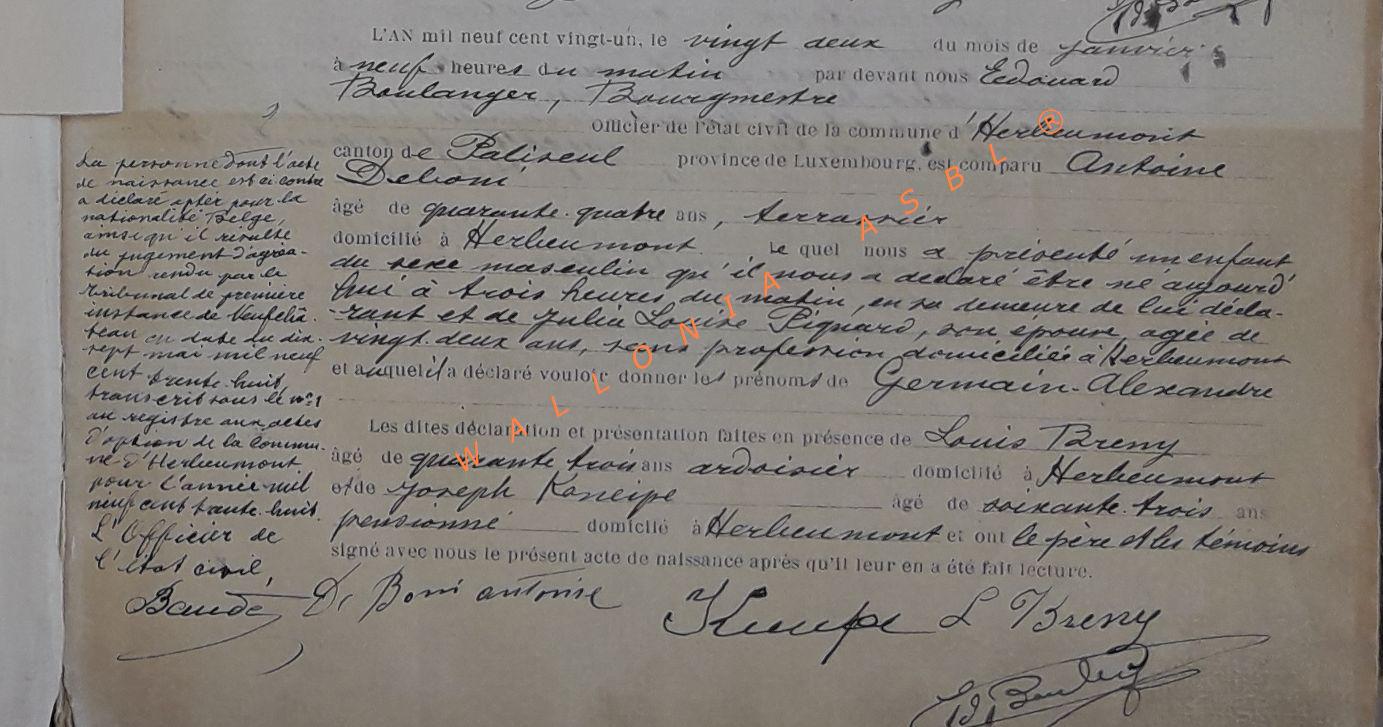 L'AN mil neuf cent vingt-un, le vingt deux du mois de janvier
à neuf heures du matin par devant nous Edouard
Boulanger, Bourgmestre
Officier de l'état civil de la commune d'Herbeumont
canton de Paliseul province de Luxembourg, est comparu Antoine
Deboni
âgé de quarante-quatre ans, terrassier
domicilié à Herbeumont Le quel nous a présenté un enfant
du sexe masculin qu'il nous a déclaré être né aujourd'
hui à trois heures du matin, en sa demeure de lui décla-
rant et de Julia Louise Pignard, son épouse, agée de
vingt-deux ans, sans profession domiciliée à Herbeumont
et auquel il a déclaré vouloir donner les prénoms de Germain-Alexandre
Les dites déclaration et présentation faites en présence de Louis Breny
âgé de quarante trois ans ardoisier domicilié à Herbeumont
et de Joseph Kneipe âgé de soixante-trois ans
pensionné domicilié à Herbeumont et ont le père et les témoins
signé avec nous le présent acte de naissance après qu'il leur en a été fait lecture.
La personne dont l'acte
de naissance est ci contre
a déclaré opter pour la
nationalité Belge,
ainsi qu'il résulte
du jugement d'agréa-
tion rendu par le
tribunal de première
instance de Neufchâ-
teau en date du dix
sept mai mil neuf
cent trente-huit,
transcrit sous le n° 1
au registre aux actes
d'option de la Commu-
ne d'Herbeumont,
pour l'année mil
neuf cent trente-huit.
L'Officier de
l'état civil,
Baudé De Boni antoine Kneipe L Breny
Ed. Boulanger
WALLONIA ASBL ®